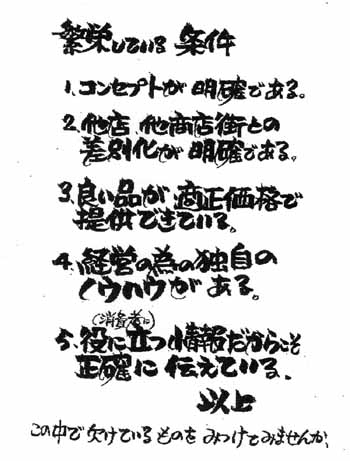 繁栄している 条件
1、コンセプトが 明確である。
2、他店、他商店街との
差別化が 明確である。
3、良い品が 適正価格で
提供できている。
4、経営の為の独自の
ノウハウがある。
(消費者に)
5、役に立つ情報だからこそ
正確に 伝えている、
以上
この中で欠けているものをみつけてみませんか、